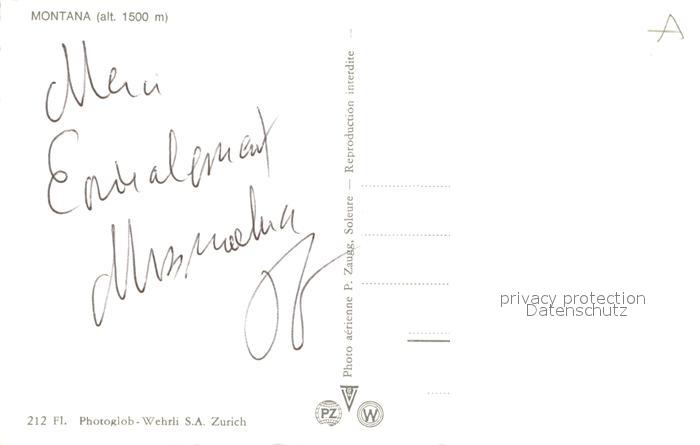 MONTANA (alt. 1500 m)
A
Merci
Photo aérienne P. Zaugg, Soleure — Reproduction interdite —
privacy protection
Datenschutz
212 Fl. Photoglob-Wehrli S.A. Zurich
PZ
W